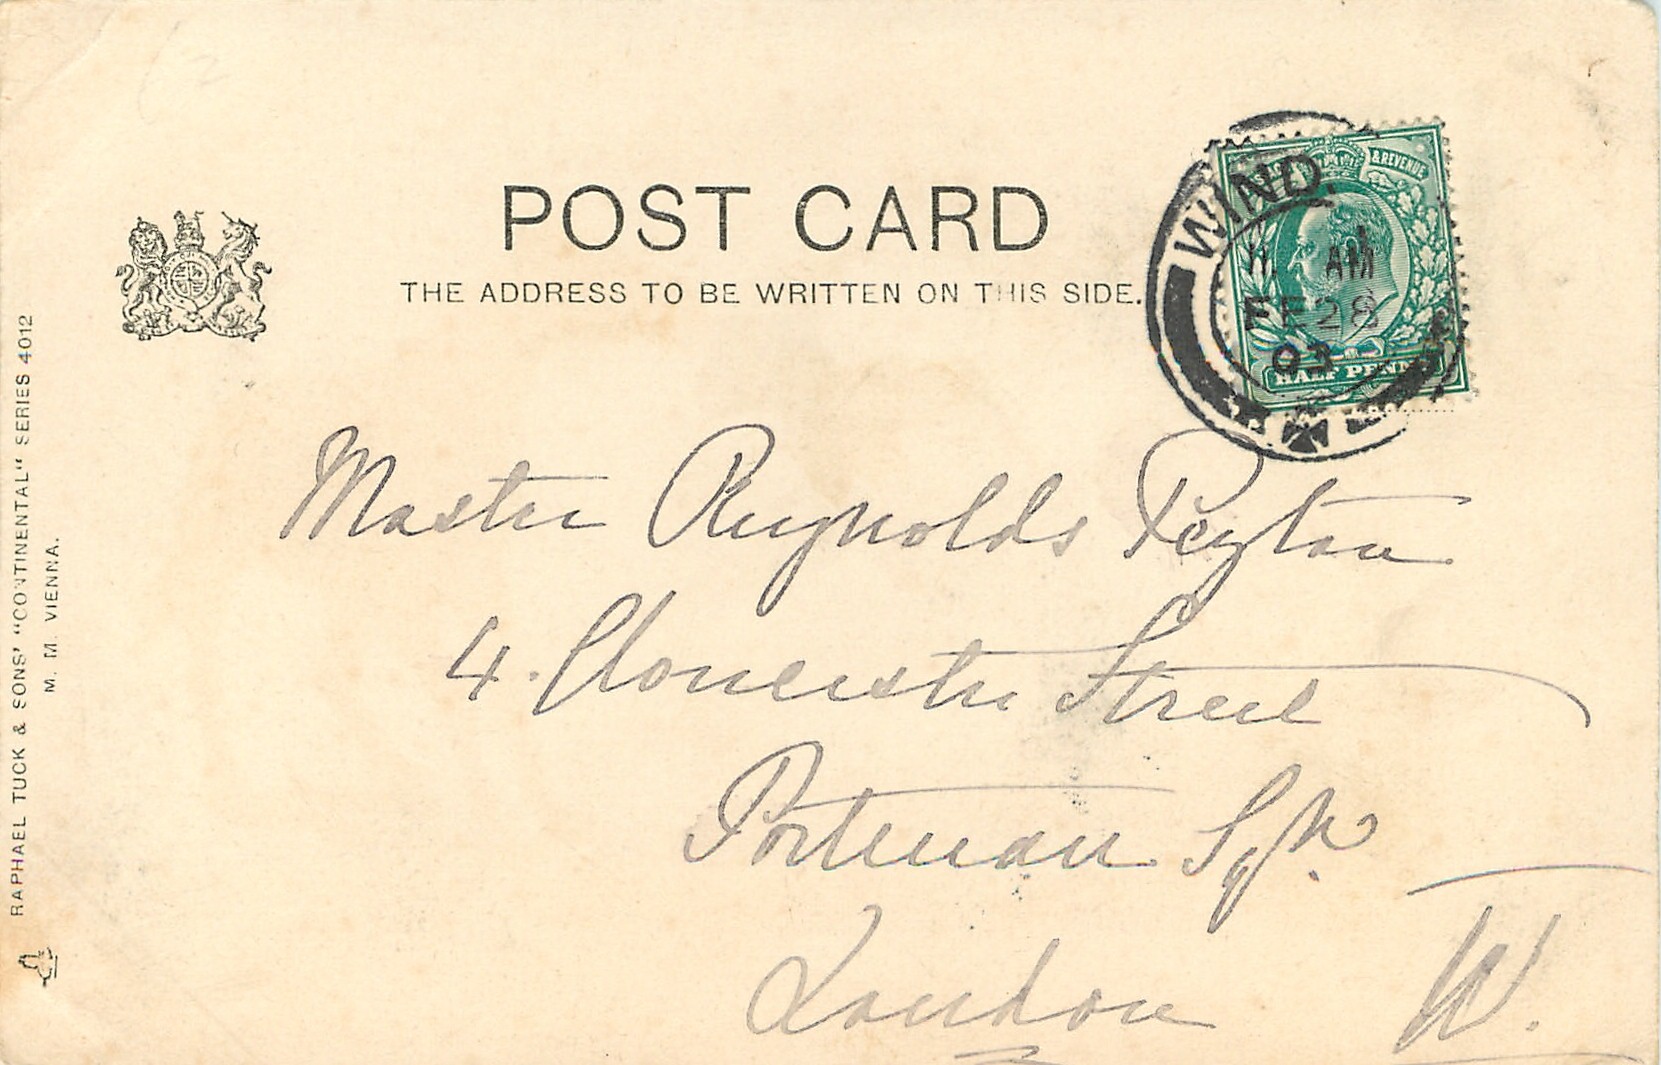 POST CARD
THE ADDRESS TO BE WRITTEN ON THIS SIDE.
& REVENUE
HALF PENNY
WIND.
11 AM
FE 28
03
Master Reynolds Peyton
4. Gloucester Street
Portman Sqr.
London W.
RAPHAEL TUCK & SONS' "CONTINENTAL" SERIES 4012
M. M. VIENNA.